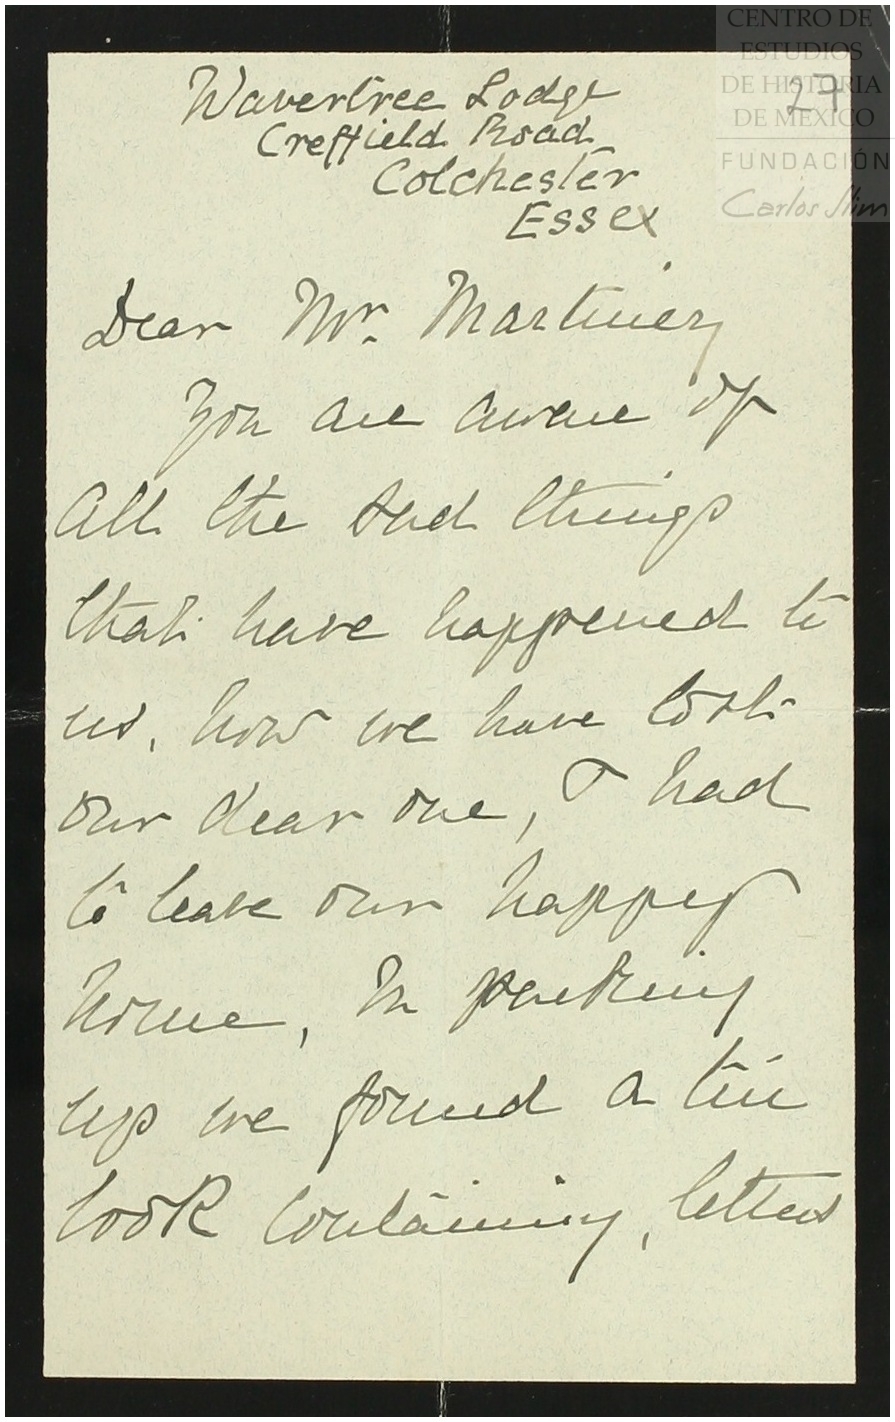 CENTRO DE
ESTUDIOS
DE HISTORIA
DE MEXICO
FUNDACIÓN
Carlos Slim
27
Wavertree Lodge
Creffield Road
Colchester
Essex
Dear Mr. Martinez
You are aware of
all the sad things
that have happened to
us, how we have lost
our dear one, & had
to leave our happy
home, In packing
up we found a tin
look containing, letters